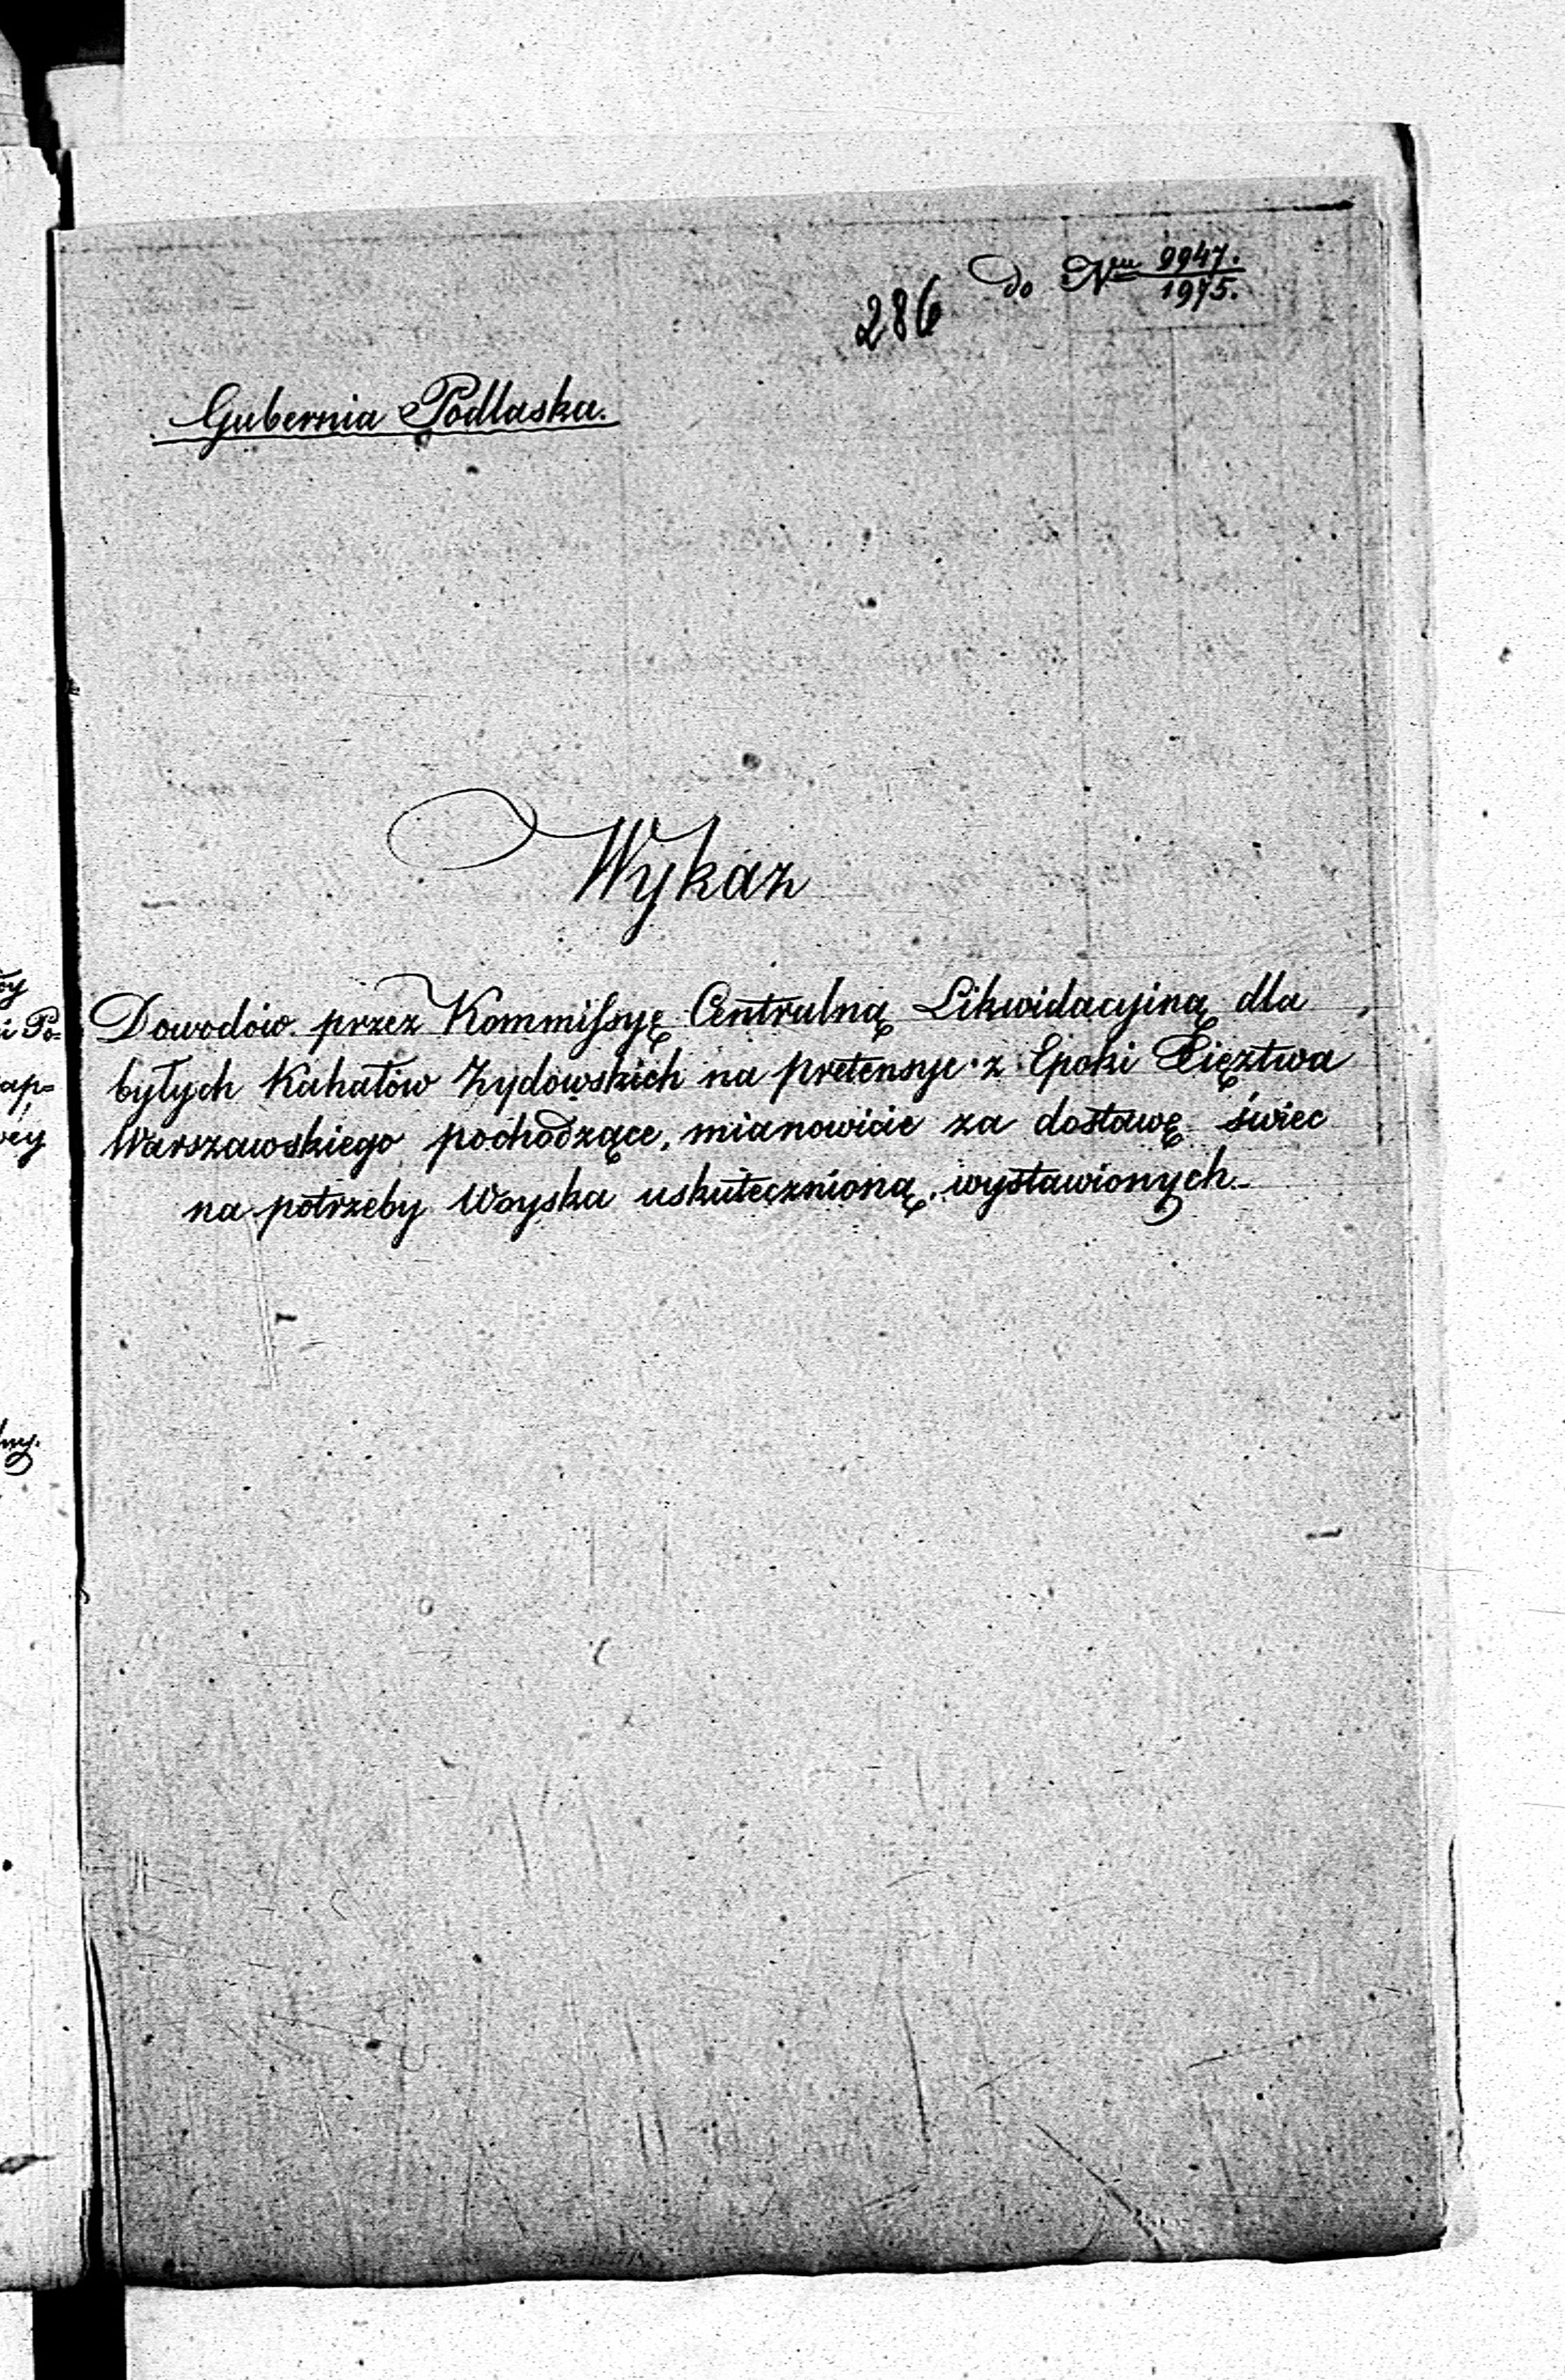 286 do Nru 9947./1975.
Gubernia Podlaska.
Wykaz
Dowodów przez Kommissyę Centralną Likwidacyiną dla
byłych Kahałów Żydowskich na pretensye z Epoki Xięztwa
Warszawskiego pochodzące, mianowicie za dostawę świec
na potrzeby Woyska uskutecznioną, wystawionych.